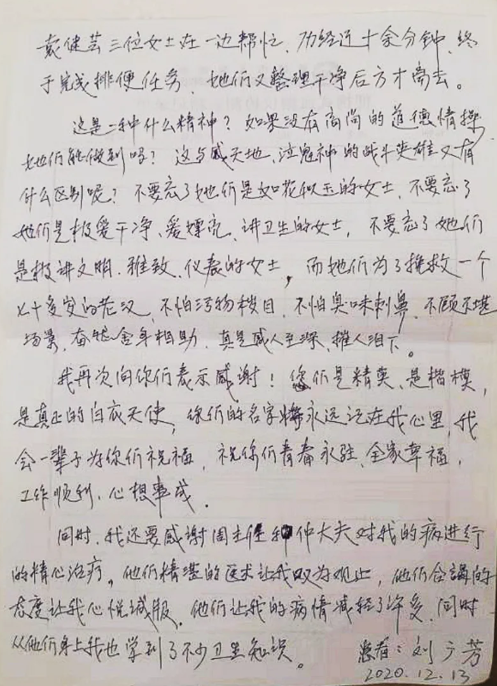 袁健芸三位女士在一边帮忙、历经近十余分钟,终
于完成排便任务,她们又整理干净后方才离去。
这是一种什么精神?如果没有高尚的道德情操
她们能做到吗?这与感天地、泣鬼神的战斗英雄又有
什么区别呢?不要忘了她们是如花似玉的女士,不要忘了
她们是极爱干净、爱漂亮、讲卫生的女士,不要忘了她们
是极讲文明、雅致、仪表的女士,而她们为了挽救一个
七十多岁的老汉,不怕污物棘目、不怕臭味刺鼻、不顾不堪
场景,奋然全年相助,真是感人至深、摧人泪下。
我再次向你们表示感谢!您们是精英、是楷模,
是真正的白衣天使,你们的名字将永远记在我心里,我
会一辈子为你们祝福,祝你们青春永驻、全家幸福,
工作顺利、心想事成.
同时,我还要感谢周主任和仲大夫对我的病进行
的精心治疗。他们精湛的医术让我叹为观止,他们合谐的
态度让我心悦诚服。他们让我的病情减轻了许多,同时
从他们身上我也学到了不少卫生知识。
患者:刘广芳
2020.12.13